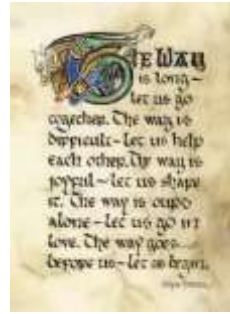 The Way
is long –
let us go
together. The way is
difficult – let us help
each other. The way is
joyful – let us share
it. The way is ours
alone – let us go in
love. The way goes
before us – let us begin.